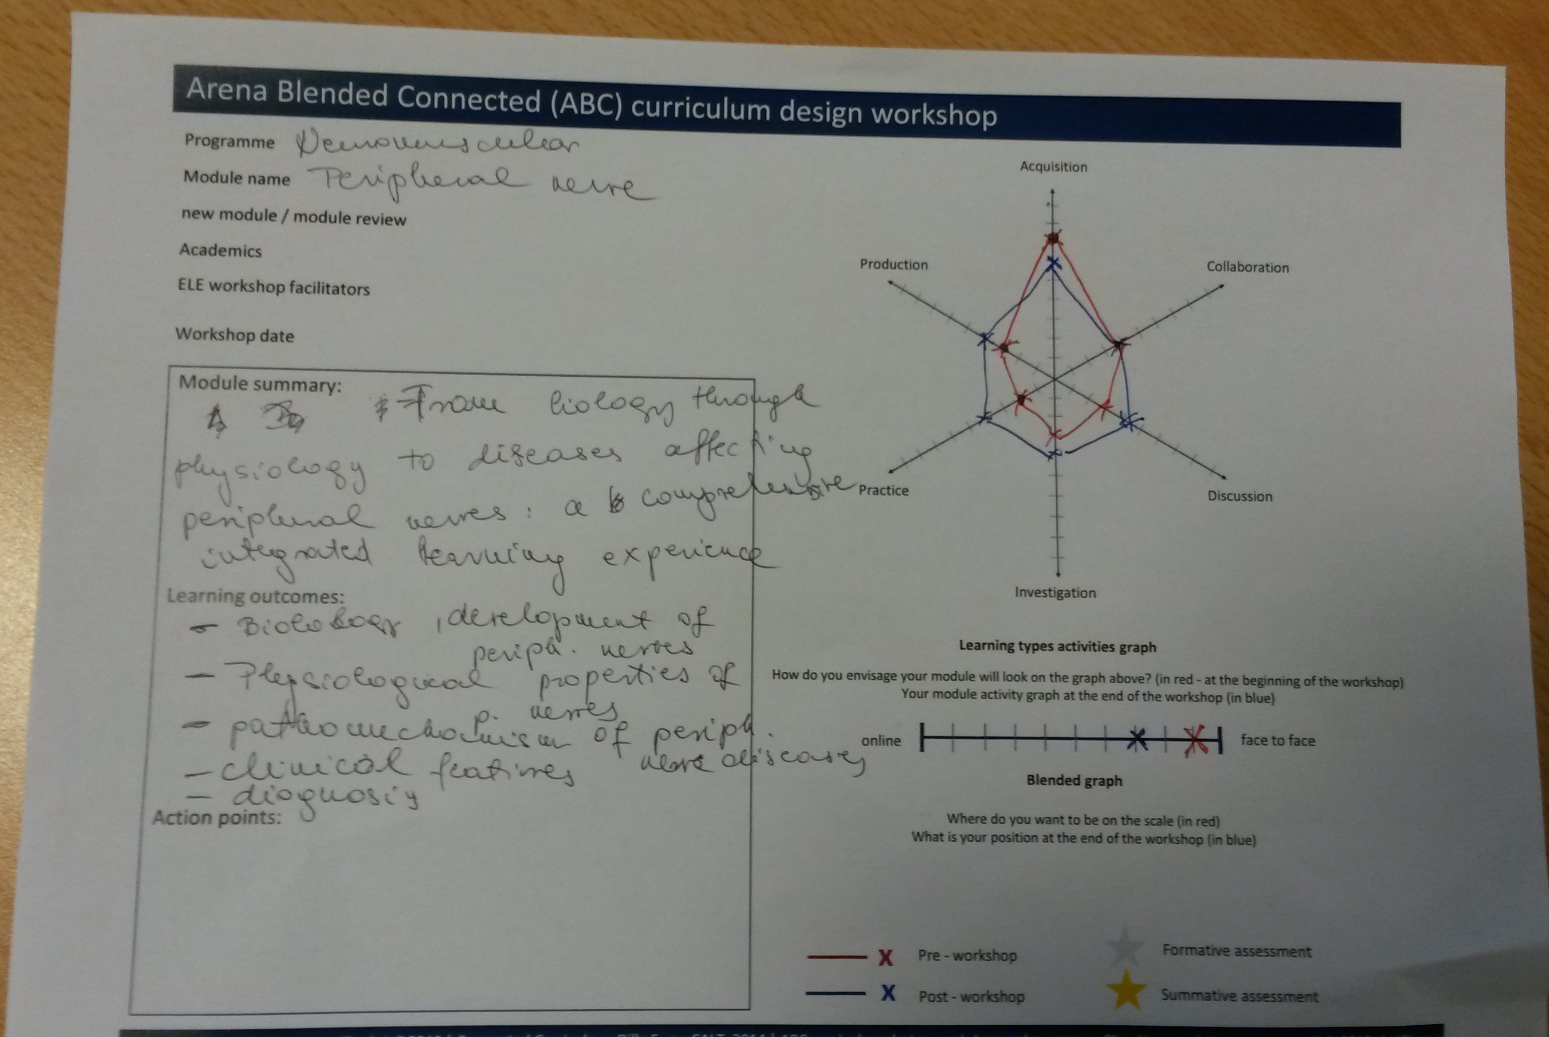 Arena Blended Connected (ABC) curriculum design workshop
Programme Neuromuscular
Module name Peripheral nerve
new module / module review
Academics
ELE workshop facilitators
Workshop date
Module summary:
From biology through
physiology to diseases affecting
peripheral nerves: a comprehensive
integrated learning experience
Learning outcomes:
- Biology, development of
periph. nerves
- Physiological properties of
p. nerves
- pathomechanism of periph.
nerve diseases
- clinical features
- diagnosis
Action points:
Acquisition
Production
Collaboration
Practice
Discussion
Investigation
Learning types activities graph
How do you envisage your module will look on the graph above? (in red - at the beginning of the workshop)
Your module activity graph at the end of the workshop (in blue)
online
face to face
Blended graph
Where do you want to be on the scale (in red)
What is your position at the end of the workshop (in blue)
X Pre - workshop
X Post - workshop
Formative assessment
Summative assessment